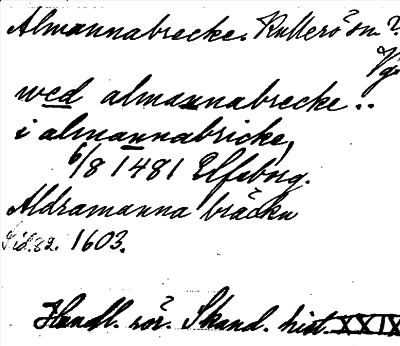 Almannabrecke. Kullerö? sn. ?
Vg.
wed almannabrecke ..
i almannabricke,
6/8 1481 Elfsborg.
Aldramanna bräcka
Sid. 82. 1603.
Handl. rör. Skand. hist. XXIX